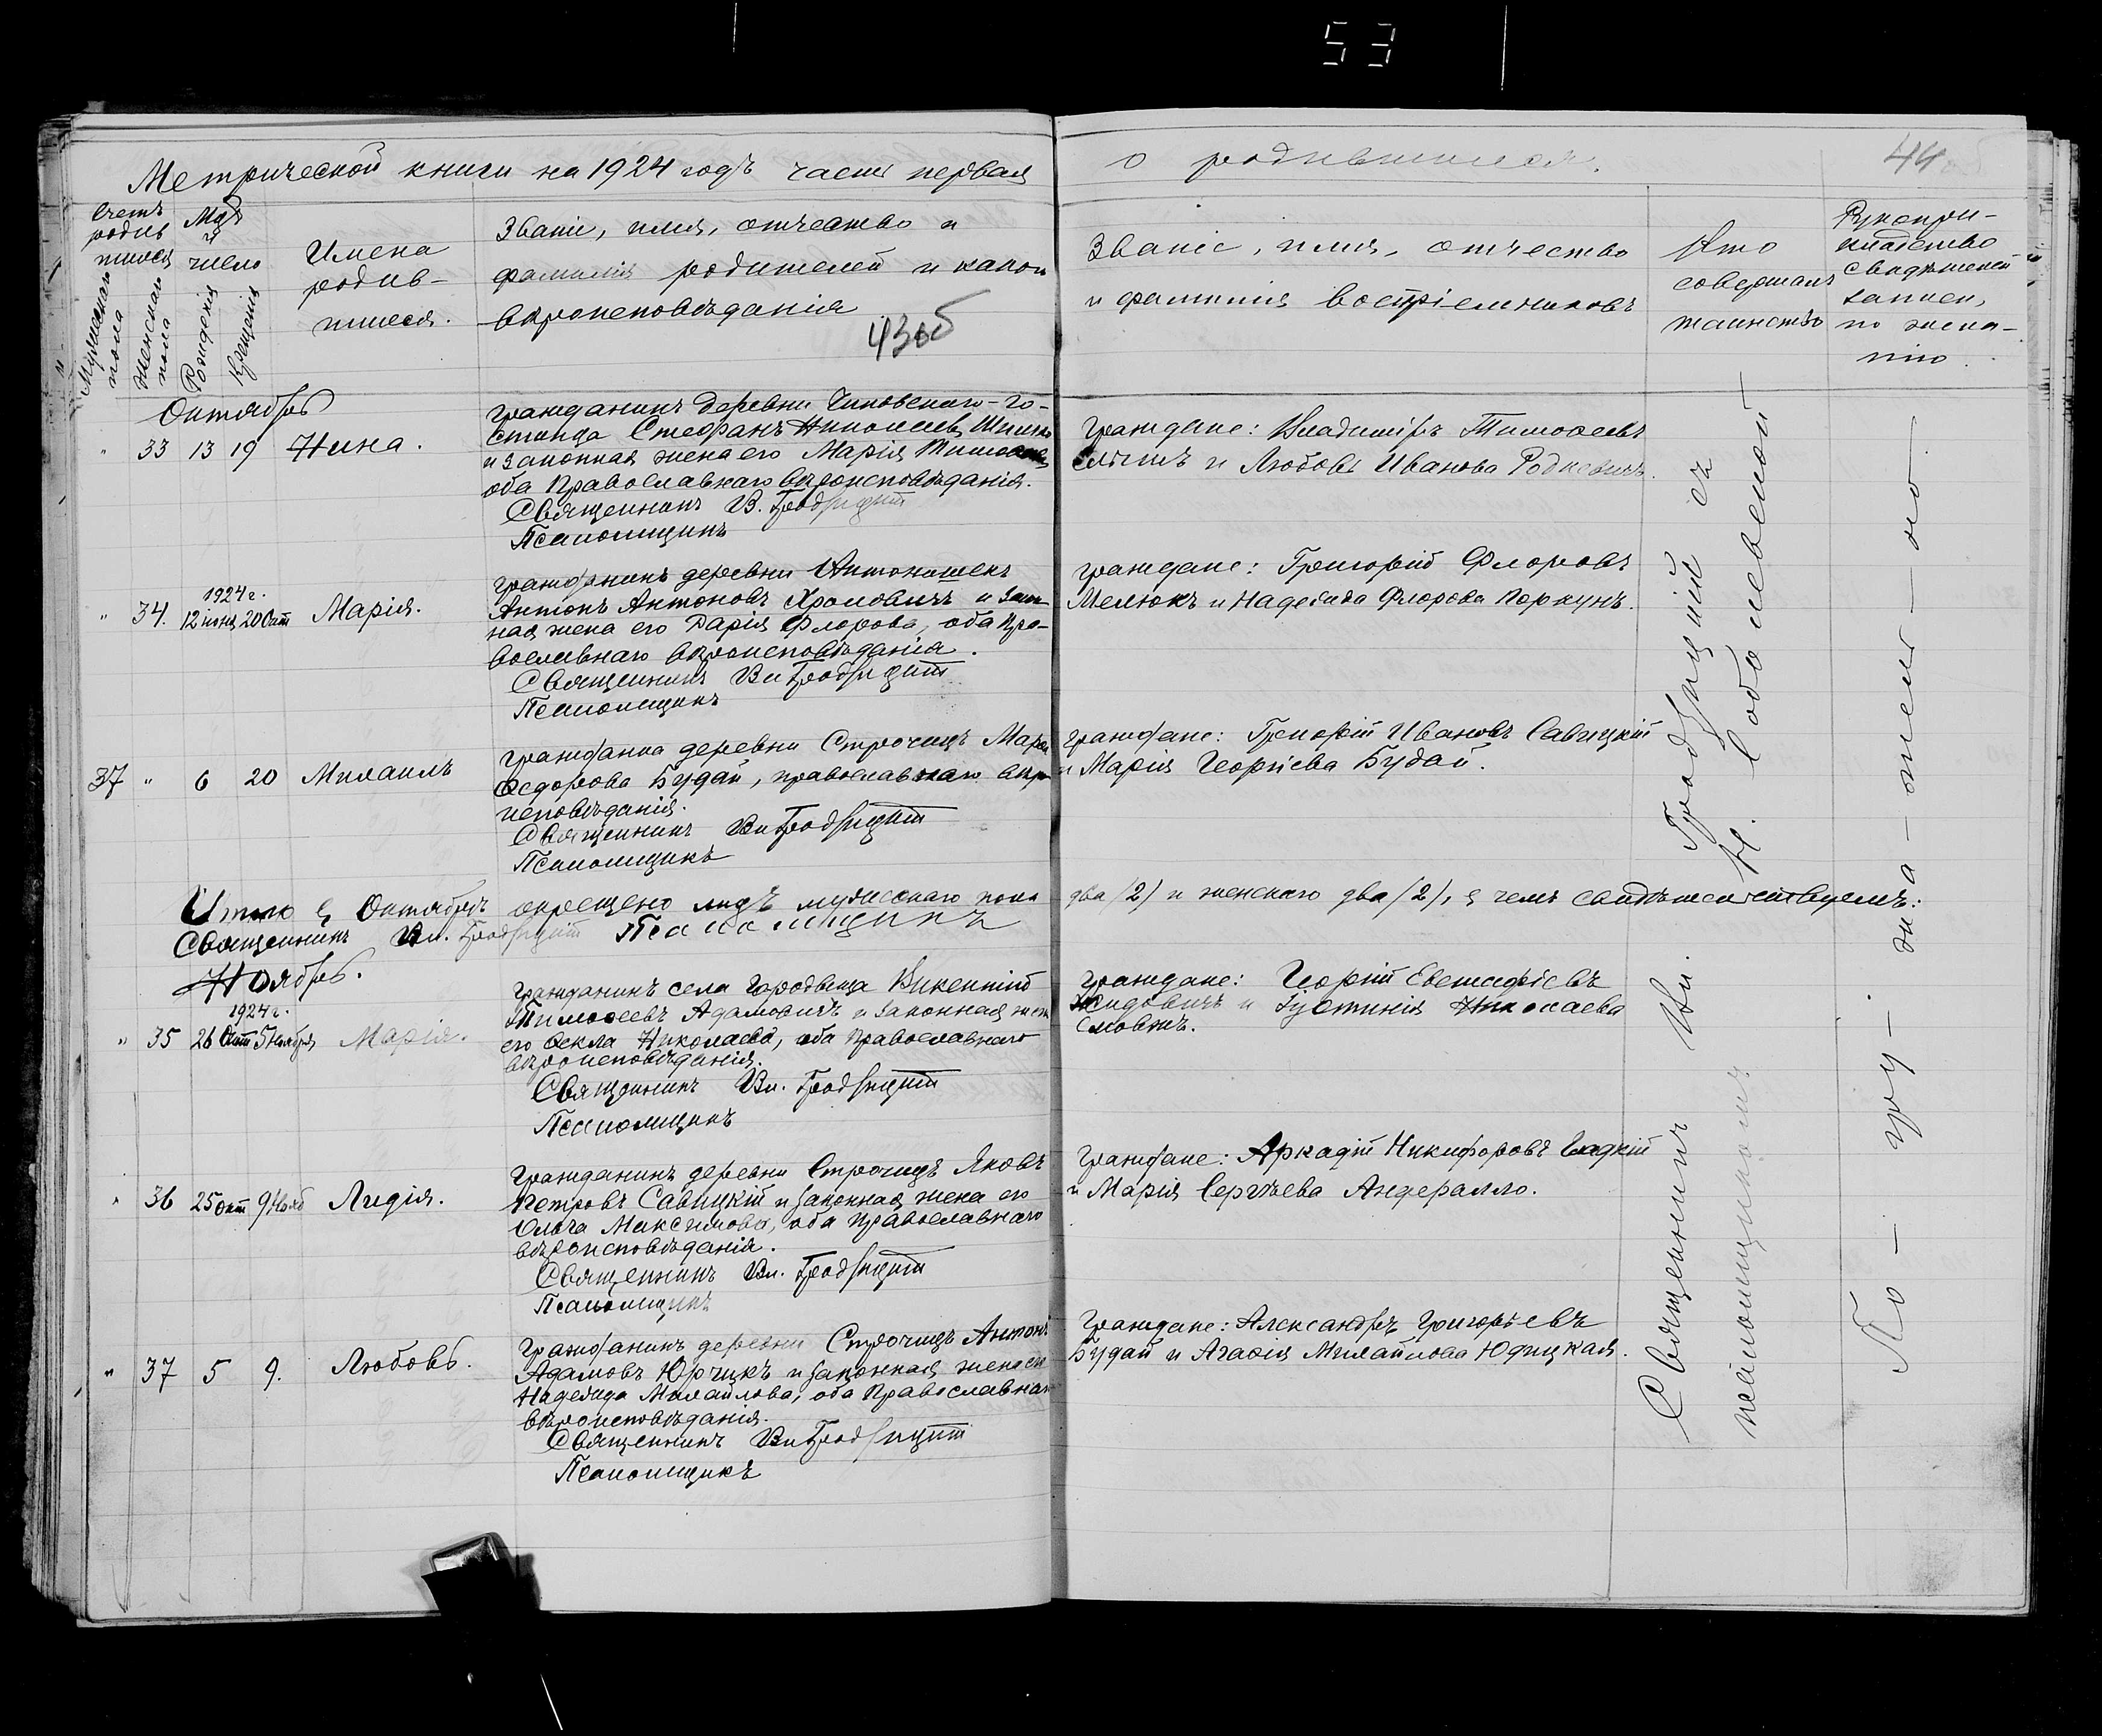 53
Метрической книги на 1924 годъ часть первая о родившихся.
44
Счетъ родившихся
Мужескаго пола
Женскаго пола
Мѣс. и число
Рожденія
Крещенія
Имена родив-
шихся.
Званіе, имя, отчество и
фамилія родителей и какого
вѣроисповѣданія
43об
Званіе, имя, отчество
и фамилія воспріемниковъ
Кто
совершалъ
таинство
Рукопри-
кладство
свидѣтелей
записи,
по жела-
нію.
Октябрь
" 33 13 19 Нина.
Гражданинъ деревни
Стефанъ Николаевъ
и законная жена его Марія
оба Православнаго вѣроисповѣданія.
Священникъ В. Гродзицкій
Псаломщикъ
Граждане: Владиміръ Тимоѳеевъ
и Любовь Иванова Родкевичъ.
" 34. 1924 г. 12 іюня 20 Окт Марія.
гражданинъ деревни Антонишекъ
Антонъ Антоновъ Хромовичъ и закон-
ная жена его Дарія Флорова, оба Пра-
вославнаго вѣроисповѣданія.
Священникъ Вл Гродзицкій
Псаломщикъ
граждане: Григорій Флоровъ
Мелюкъ и Надежда Флорова Коркунъ.
37 " 6 20 Михаилъ
гражданка деревни Строчицъ Марія
Ѳедорова Будай, православнаго вѣро-
исповѣданія.
Священникъ Вл Гродзицкій
Псаломщикъ
граждане: Григорій Ивановъ Савицкій
и Марія Георгіева Будай.
Итого въ Октябрѣ окрещено лицъ мужескаго пола два (2) и женскаго два (2), въ чемъ свидѣтельствуемъ:
Священникъ Вл. Гродзицкій Псаломщикъ
Ноябрь.
" 35 1924 г. 26 Окт 5 Ноября Марія.
Гражданинъ села Городвища Викентій
Тимоѳеевъ Адамовичъ и законная жена
его Ѳекла Николаева, оба Православнаго
вѣроисповѣданія.
Священникъ Вл. Гродзицкій
Псаломщикъ
Граждане: Георгій Евстафіевъ
Жидовичъ и Іустинія Николаева
" 36 25 окт 9 Нояб Лидія.
Гражданинъ деревни Строчицъ Яковъ
Петровъ Савицкій и законная жена его
Ольга Максимова, оба Православнаго
вѣроисповѣданія.
Священникъ Вл. Гродзицкій
Псаломщикъ
Граждане: Аркадій Никифоровъ Гладкій
и Марія Сергѣева Андерало.
" 37 5 9. Любовь.
Гражданинъ деревни Строчицъ Антонъ
Адамовъ Юрчикъ и законная жена его
Надежда Михайлова, оба Православнаго
вѣроисповѣданія.
Священникъ Вл Гродзицкій
Псаломщикъ
Граждане: Александръ Григорьевъ
Будай и Агафія Михайлова Юрицкая.
Священникъ Вл. Гродзицкій съ
псаломщикомъ Н. Соболевской
По – гу – ла – тель – но